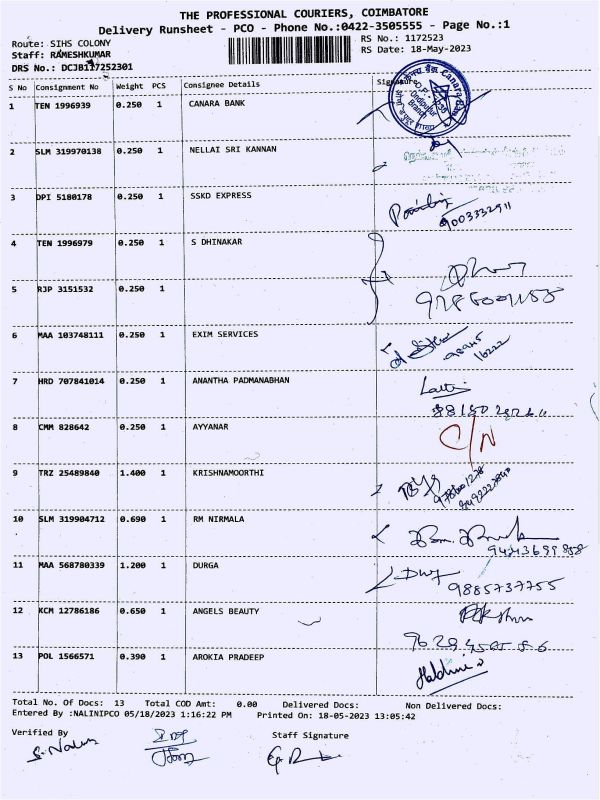 THE PROFESSIONAL COURIERS, COIMBATORE
Delivery Runsheet - PCO - Phone No.:0422-3505555 - Page No.:1
Route: SIHS COLONY RS No.: 1172523
Staff: RAMESHKUMAR RS Date: 18-May-2023
DRS No.: DCJB117252301
S No Consignment No Weight PCS Consignee Details Signature
1 TEN 1996939 0.250 1 CANARA BANK
Canara Bank
Ondipudur
Branch
2 SLM 319970138 0.250 1 NELLAI SRI KANNAN
3 DPI 5180178 0.250 1 SSKD EXPRESS
9003332911
4 TEN 1996979 0.250 1 S DHINAKAR
5 RJP 3151532 0.250 1
6 MAA 103748111 0.250 1 EXIM SERVICES
7 HRD 707841014 0.250 1 ANANTHA PADMANABHAN
8 CMM 828642 0.250 1 AYYANAR C/N
9 TRZ 25489840 1.400 1 KRISHNAMOORTHI
10 SLM 319904712 0.690 1 RM NIRMALA
11 MAA 568780339 1.200 1 DURGA
9885737755
12 KCM 12786186 0.650 1 ANGELS BEAUTY
13 POL 1566571 0.390 1 AROKIA PRADEEP
Total No. Of Docs: 13 Total COD Amt: 0.00 Delivered Docs: Non Delivered Docs:
Entered By :NALINIPCO 05/18/2023 1:16:22 PM Printed On: 18-05-2023 13:05:42
Verified By Staff Signature